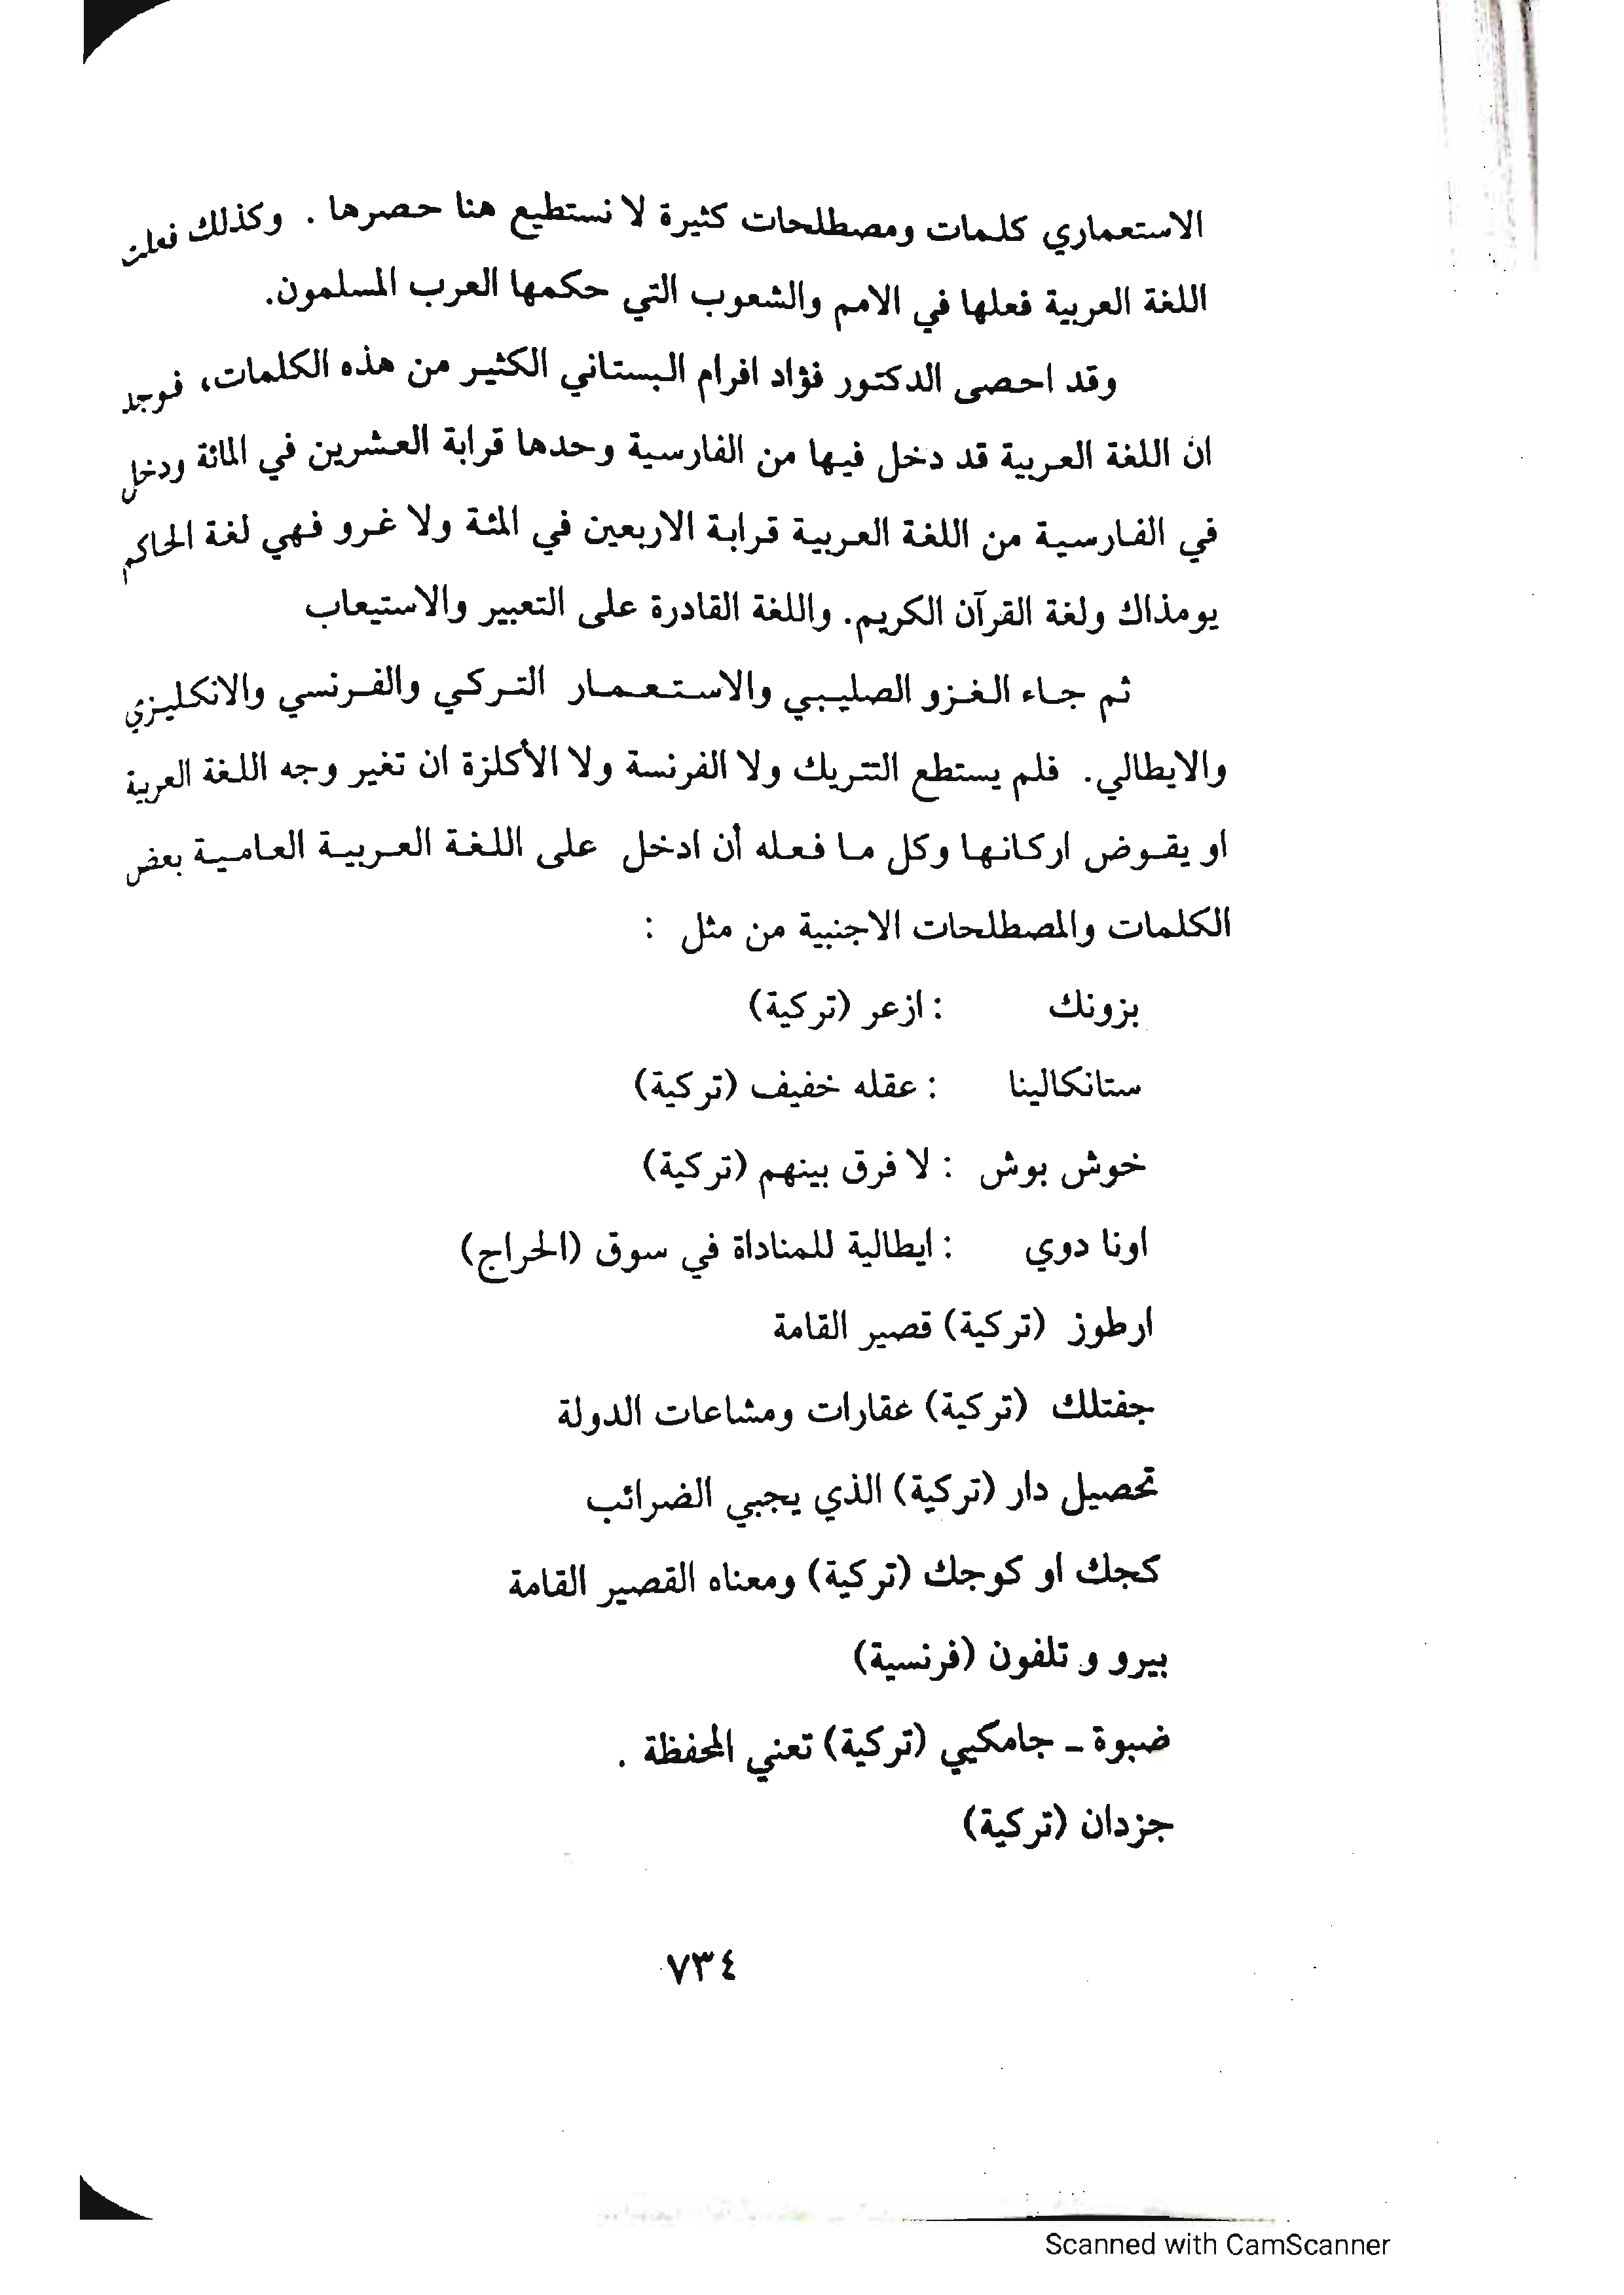 الاستعماري كلمات ومصطلحات كثيرة لا نستطيع هنا حصرها . وكذلك فعلت
اللغة العربية فعلها في الامم والشعوب التي حكمها العرب المسلمون.
وقد احصى الدكتور فؤاد افرام البستاني الكثير من هذه الكلمات، فوجد
ان اللغة العربية قد دخل فيها من الفارسية وحدها قرابة العشرين في المائة ودخل
في الفارسية من اللغة العربية قرابة الاربعين في المئة ولا غرو فهي لغة الحاكم
يومذاك ولغة القرآن الكريم. واللغة القادرة على التعبير والاستيعاب
ثم جاء الغزو الصليبي والاستعمار التركي والفرنسي والانكليزي
والايطالي. فلم يستطع التتريك ولا الفرنسة ولا الأكلزة ان تغير وجه اللغة العربية
او يقوض اركانها وكل ما فعله أن ادخل على اللغة العربية العامية بعض
الكلمات والمصطلحات الاجنبية من مثل :
بزونك : ازعر (تركية)
ستانكالينا : عقله خفيف (تركية)
خوش بوش : لا فرق بينهم (تركية)
اونا دوي : ايطالية للمناداة في سوق (الحراج)
ارطوز (تركية) قصير القامة
جفتلك (تركية) عقارات ومشاعات الدولة
تحصيل دار (تركية) الذي يجبي الضرائب
كجك او كوجك (تركية) ومعناه القصير القامة
بيرو و تلفون (فرنسية)
ضبوة ـ جامكيي (تركية) تعني المحفظة .
جزدان (تركية)
٧٣٤
Scanned with CamScanner